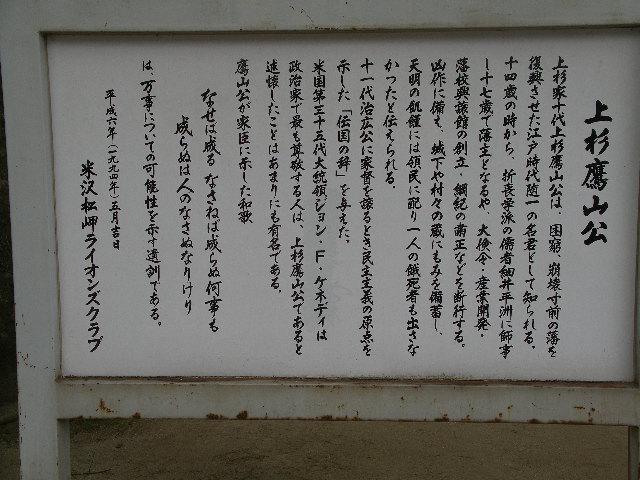 上杉鷹山公
上杉家十代上杉鷹山公は、困窮、崩壊寸前の藩を
復興させた江戸時代随一の名君として知られる。
十四歳の時から、折衷学派の儒者細井平洲に師事
し十七歳で藩主となるや、大倹令・産業開発・
藩校興譲館の創立・綱紀の粛正などを断行する。
凶作に備え、城下や村々の蔵にもみを備蓄し、
天明の飢饉には領民に配り一人の餓死者も出さな
かったと伝えられる。
十一代治広公に家督を譲るとき民主主義の原点を
示した「伝国の辞」を与えた。
米国第三十五代大統領ジョン・F・ケネディは
政治家で最も尊敬する人は、上杉鷹山公であると
述懐したことはあまりにも有名である。
鷹山公が家臣に示した和歌
なせは成る なさねば成らぬ何事も
成らぬは人のなさぬなりけり
は、万事についての可能性を示す遺訓である。
平成六年(一九九四年)五月吉日
米沢松岬ライオンズクラブ